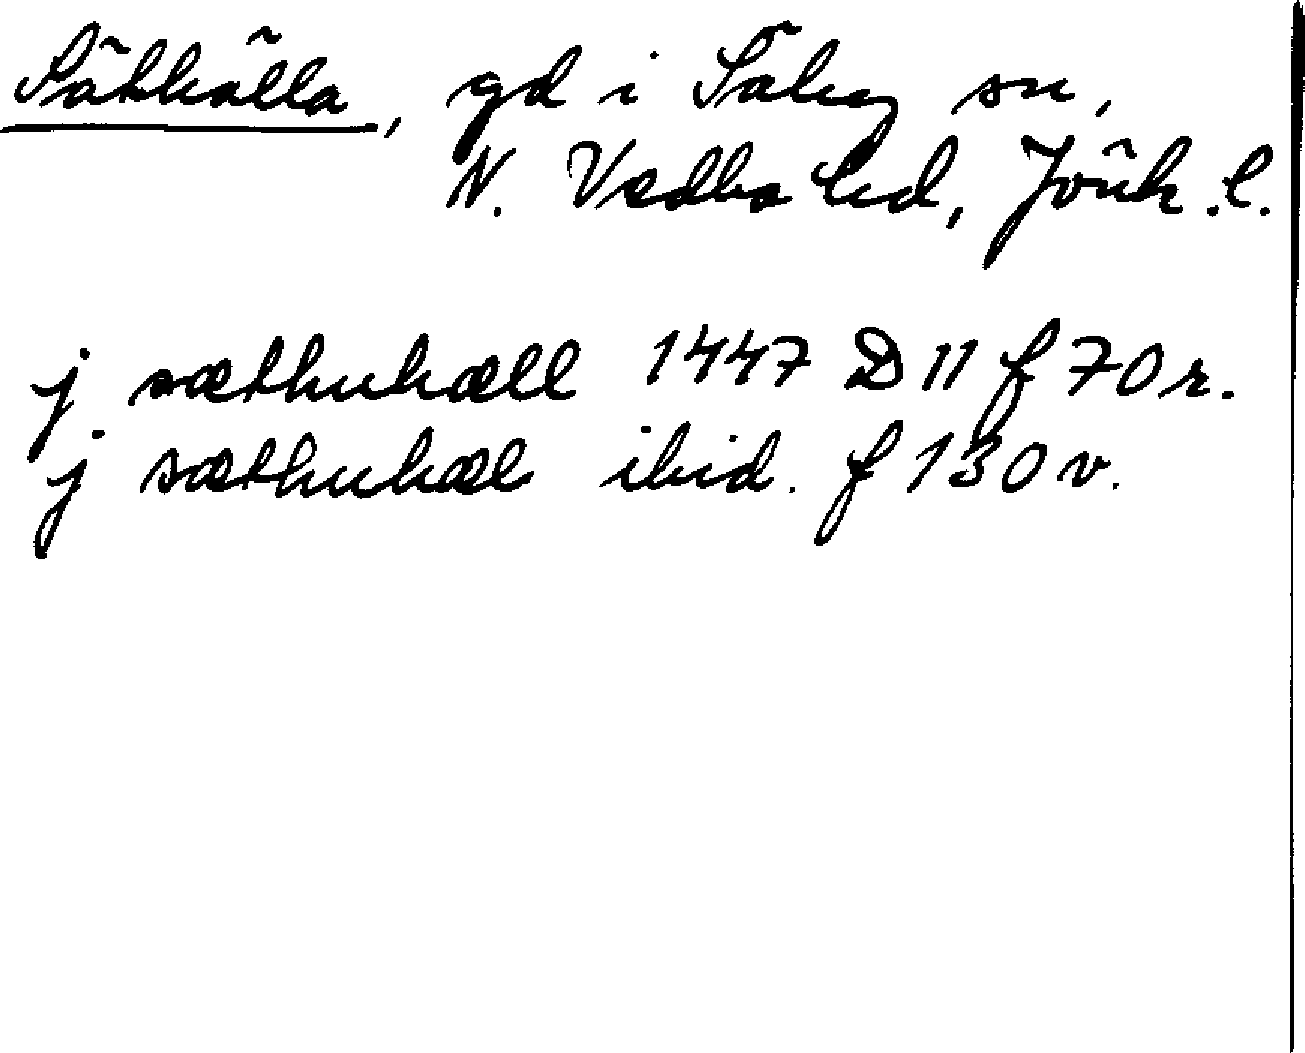 Säthälla, gd i Säby sn,
N. Vedbo hd, Jönk. l.
j sæthuhæll 1447 D 11 f 70 r.
j sæthuhæl ibid. f 130 v.